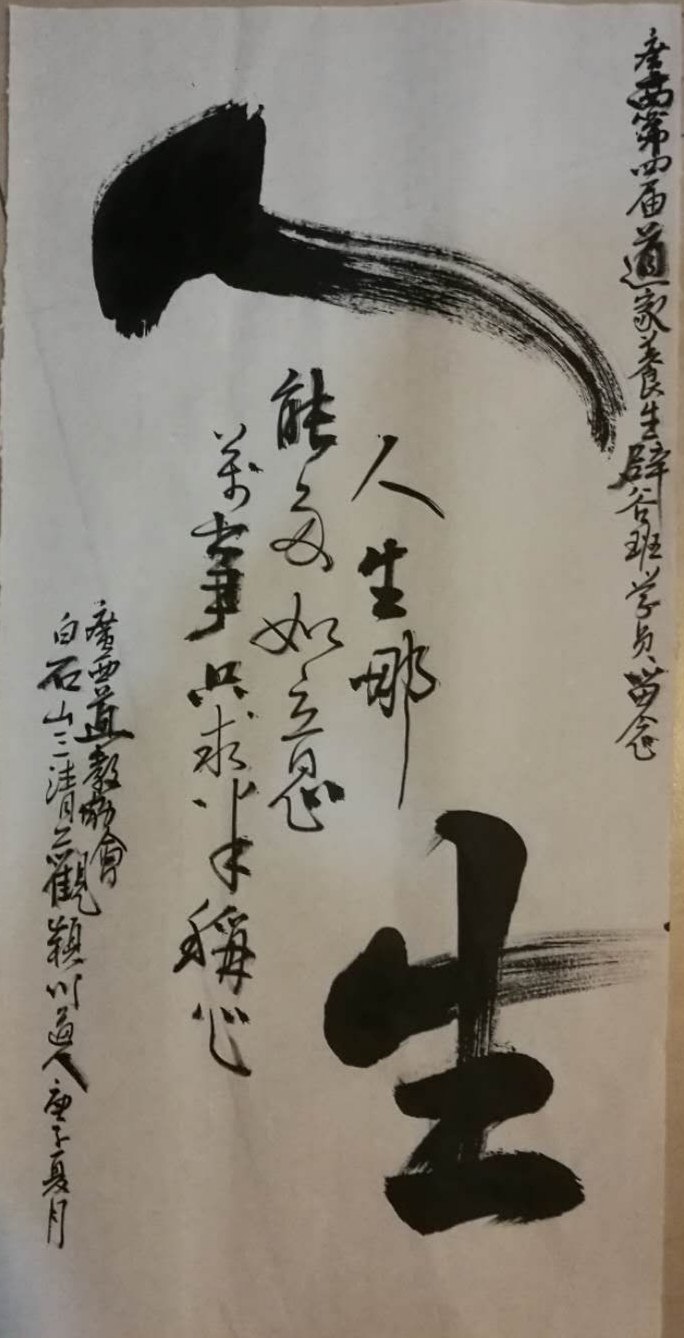 廣西第四届道家養生辟谷班学员留念
人生
人生哪
能多如意
萬事只求半稱心
廣西道教協會
白石山三清觀穎川道人庚子夏月